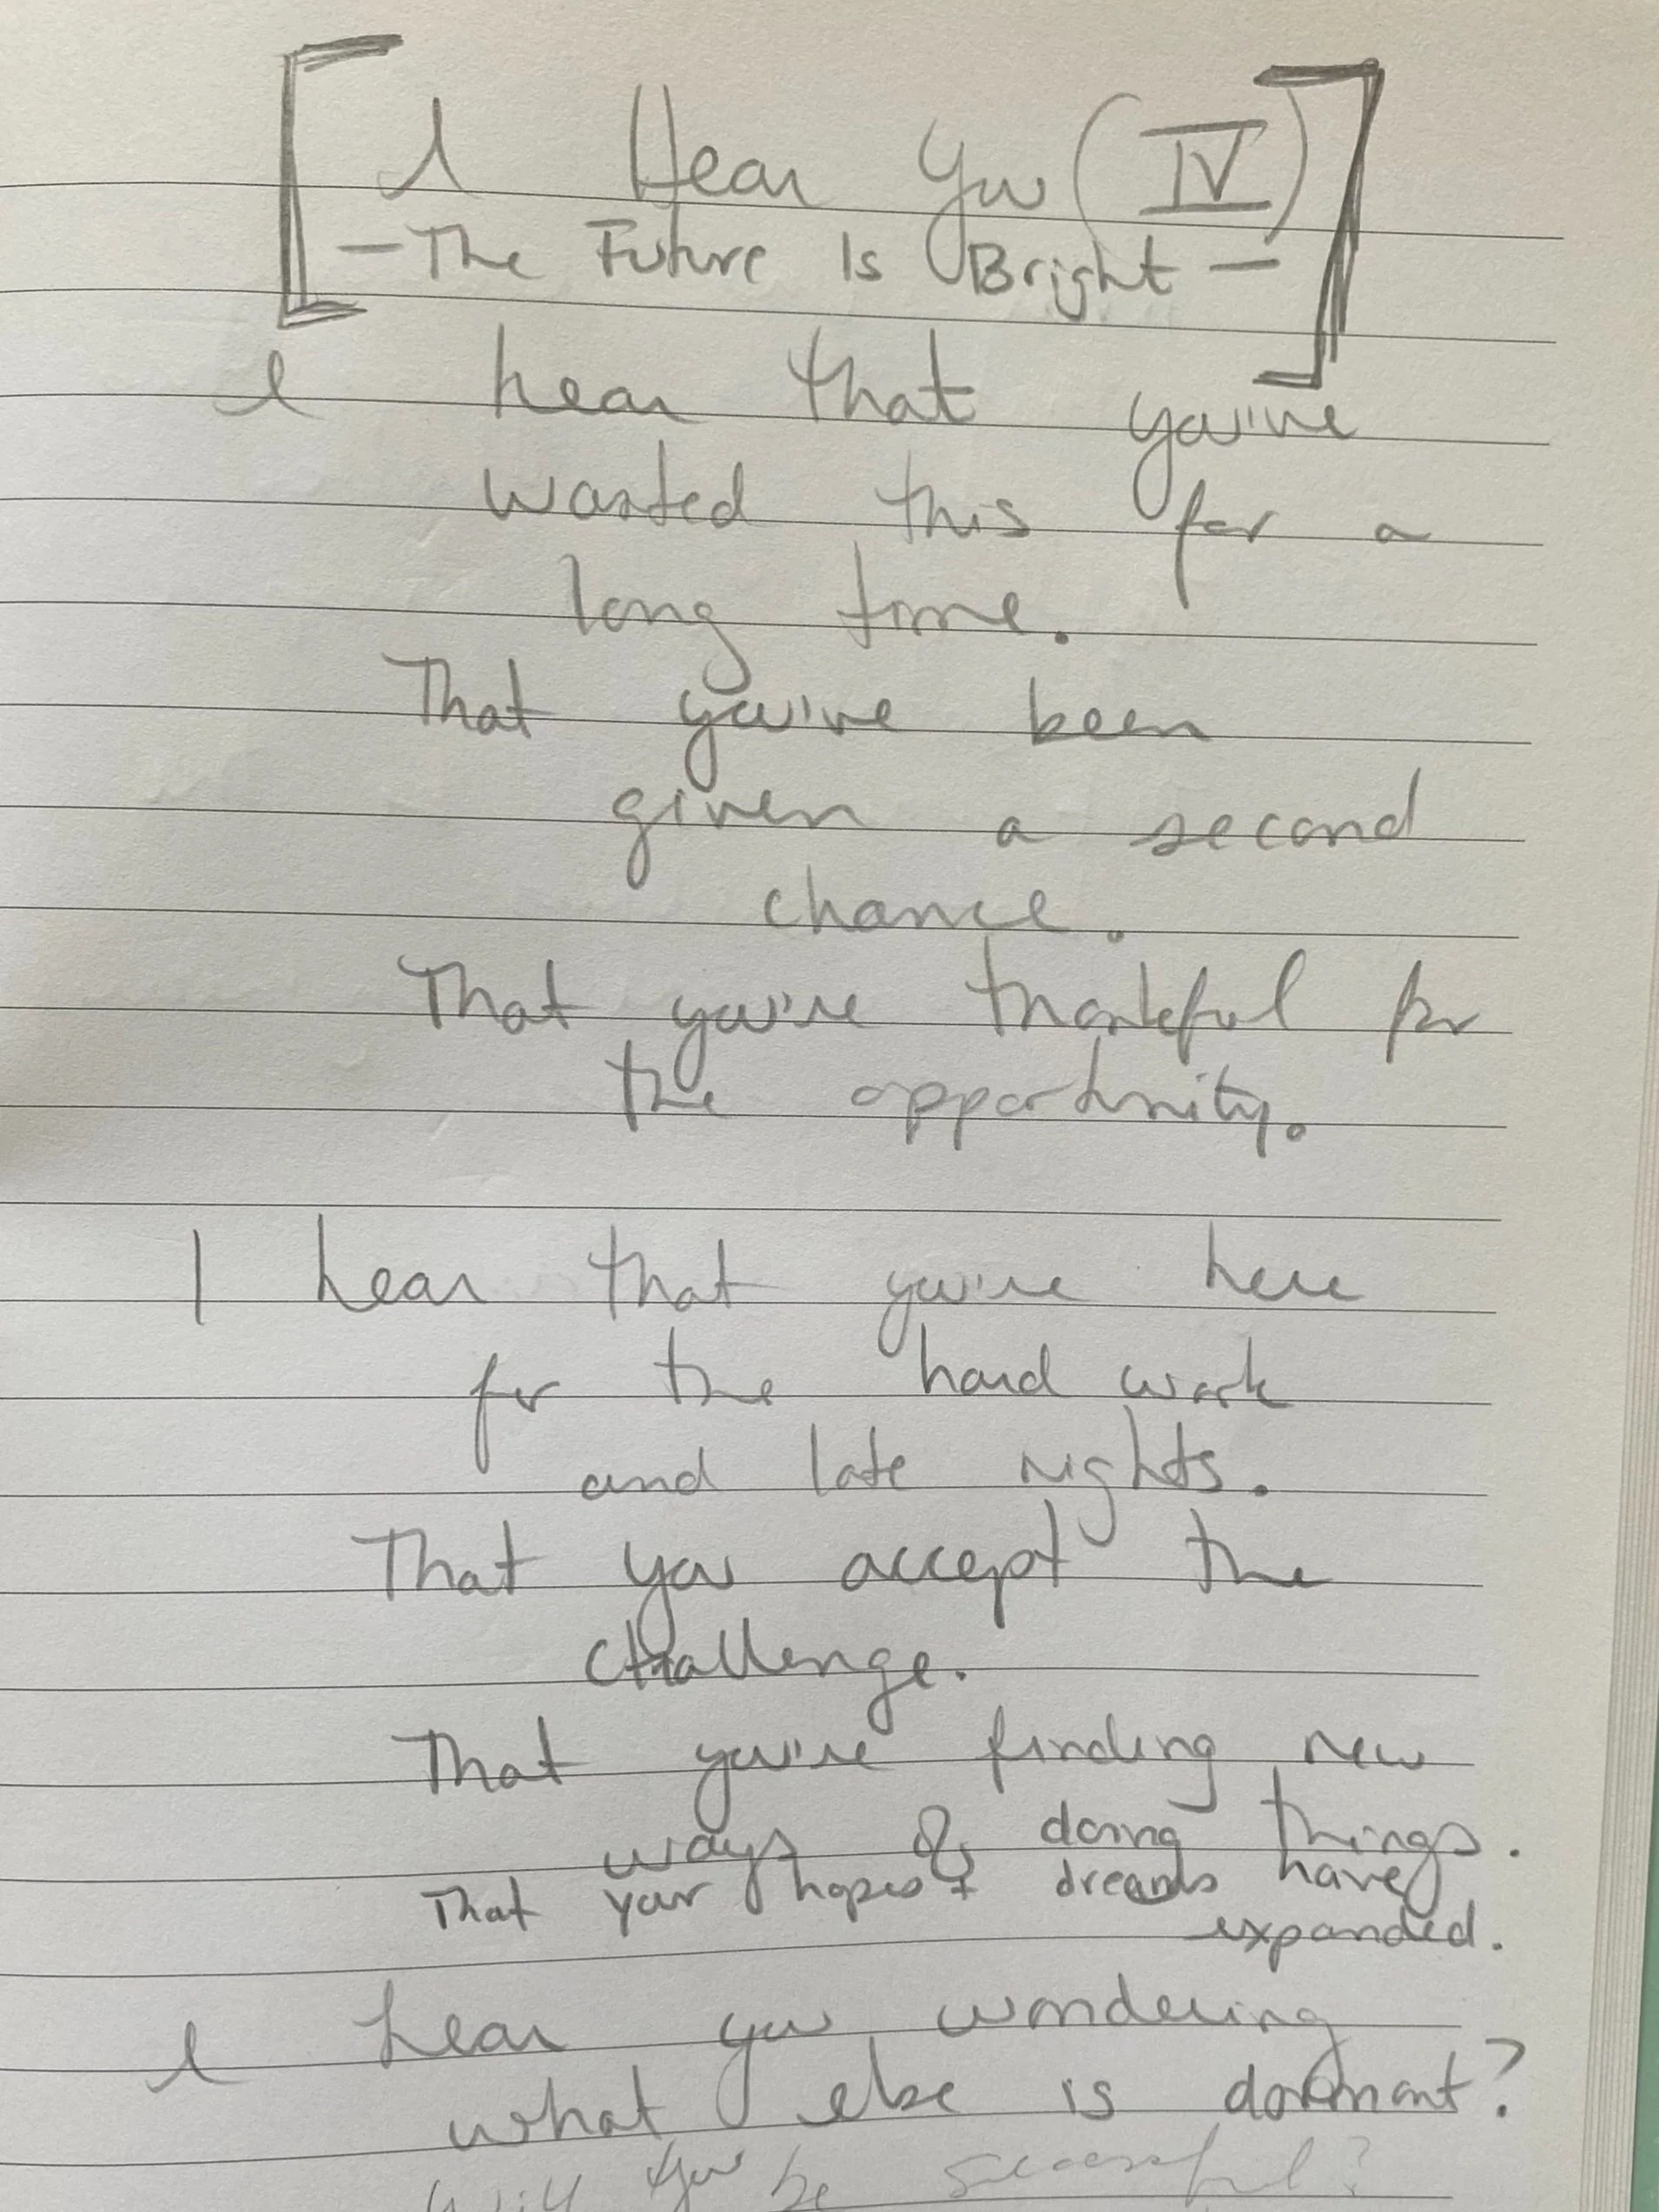 I Hear You (IV)
- The Future Is Bright -
I hear that you've
wanted this for a
long time.
That you've been
given a second
chance.
That you're thankful for
the opportunity.
I hear that you're here
for the hard work
and late nights.
That you accept the
challenge.
That you're finding new
ways of doing things.
That your hopes + dreams have
expanded.
I hear you wondering
what else is dormant?
Will you be successful?